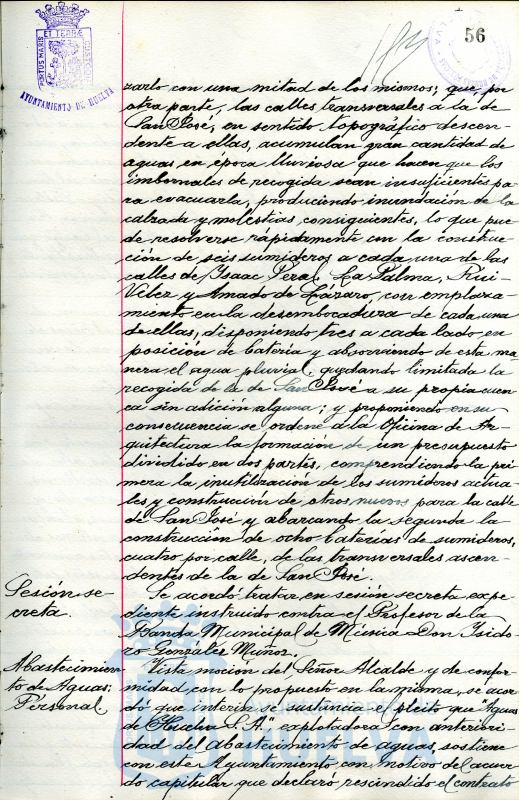 PORTUS MARIS
ET TERRÆ
CUSTODIA
AYUNTAMIENTO DE HUELVA
56
zarlo con una mitad de los mismos; que, por
otra parte, las calles transversales á la de
San José, en sentido topográfico descen-
dente a ellas, acumulan gran cantidad de
aguas en época lluviosa que hacen que los
imbornales de recogida sean insuficientes pa-
ra evacuarla, produciendo inundación de la
calzada y molestias consiguientes, lo que pue-
de resolverse rápidamente con la construc-
ción de seis sumideros a cada una de las
calles de Isaac Peral, La Palma, Rui-
Velez y Amado de Lázaro, con emplaza-
miento en la desembocadura de cada una
de ellas, disponiendo tres a cada lado en
posición de batería y absorviendo de esta ma-
nera el agua pluvial, quedando limitada la
recogida de la de San José a su propia cuen-
ca sin adición alguna; y proponiendo en su
consecuencia se ordene á la Oficina de Ar-
quitectura la formación de un presupuesto
dividido en dos partes, comprendiendo la pri-
mera la inutilización de los sumideros actua-
les y construcción de otros nuevos para la calle
de San José y abarcando la segunda la
construcción de ocho baterías de sumideros,
cuatro por calle, de las transversales ascen-
dentes de la de San José.
Sesión se-
creta.
Se acordó tratar en sesión secreta expe-
diente instruido contra el Profesor de la
Banda Municipal de Música Don Isido-
ro Gonzalez Muñoz.
Abastecimien-
to de Aguas.
Personal.
Vista moción del Señor Alcalde y de confor-
midad con lo propuesto en la misma, se acor-
dó que interin se sustancia el pleito que "Aguas
de Huelva S.A." explotadora con anteriori-
dad del abastecimiento de aguas, sostiene
con este Ayuntamiento con motivo del acuer-
do capitular que declaró rescindido el contrato
HUELVA